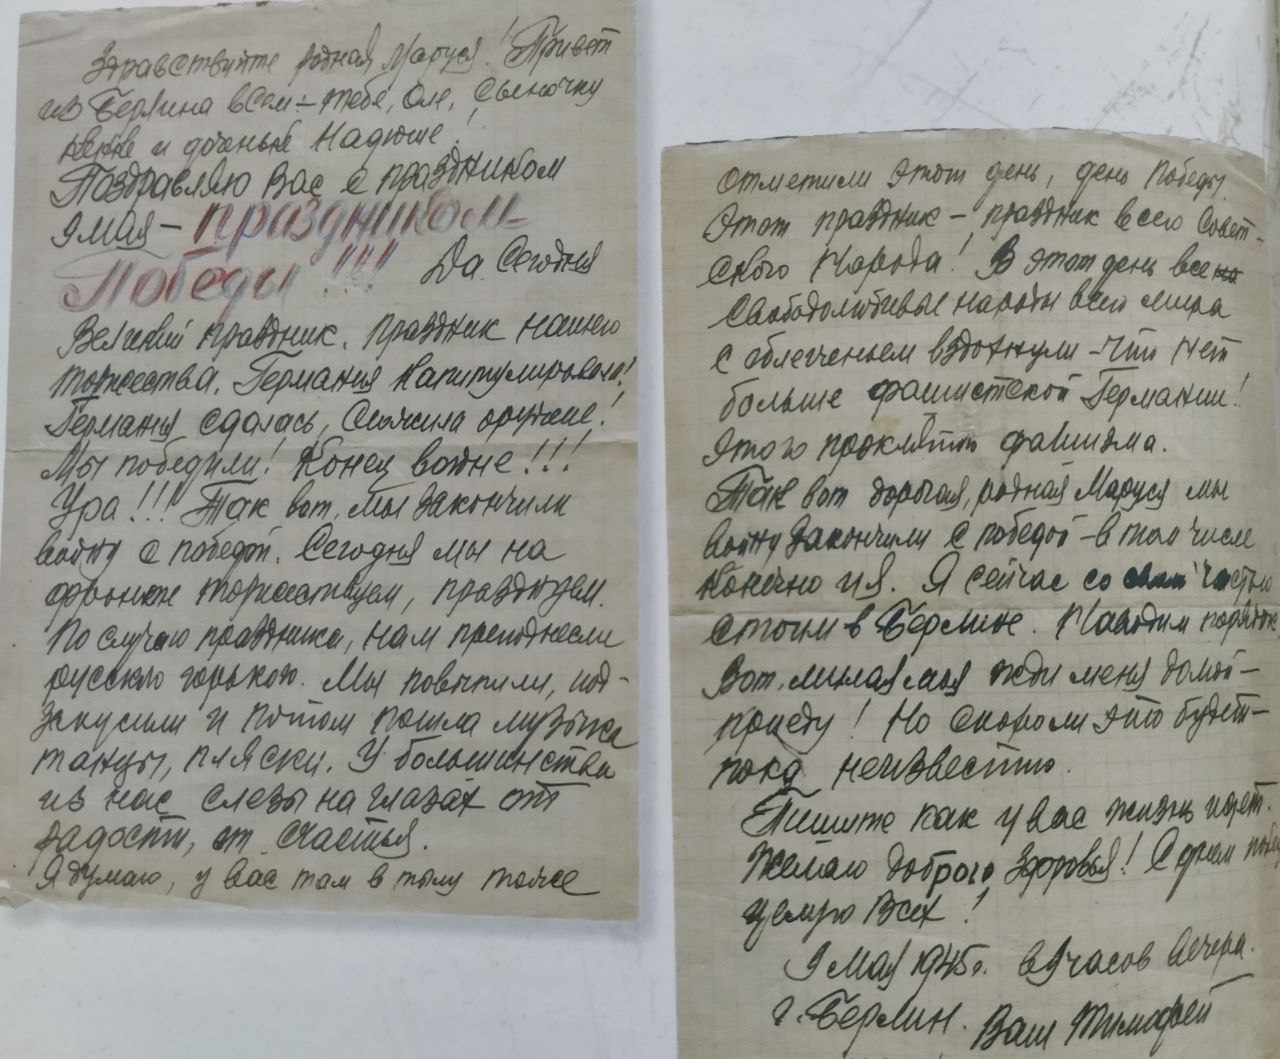 Здравствуйте родная Маруся! Привет
из Берлина всем – тебе, Оле, сыночку
и доченьке Надюше!
Поздравляю Вас с праздником
9 мая – праздником
Победы!!! Да Сегодня
Великий праздник. Праздник нашего
торжества. Германия капитулировала!
Германия сдалась, сложила оружие!
Мы победили! Конец войне!!!
Ура!!! Так вот, мы закончили
войну с победой. Сегодня мы на
фронте торжествуем, празднуем.
По случаю праздника, нам преподнесли
русскую горькую. Мы повыпили, под-
закусили и потом пошла музыка
танцы, пляски. У большинства
из нас слезы на глазах от
радости, от счастья.
Я думаю, у вас там в тылу тоже
отметили этот день, день Победы.
Этот праздник – праздник всего Совет-
ского Народа! В этот день все
свободолюбивые народы всего мира
с облегченьем вздохнули – что нет
больше фашистской Германии!
Этого проклятого фашизма.
Так вот дорогая, родная Маруся мы
войну закончили с победой – в том числе
конечно и я. Я сейчас со своей частью
стоим в Берлине. Наводим порядок
Вот, милая моя жди меня домой –
приеду! Но скоро ли это будет –
пока неизвестно.
Пишите как у вас жизнь идет.
Желаю доброго здоровья! С днем
целую Всех!
9 мая 1945г. в 9 часов вечера.
г. Берлин. Ваш Тимофей